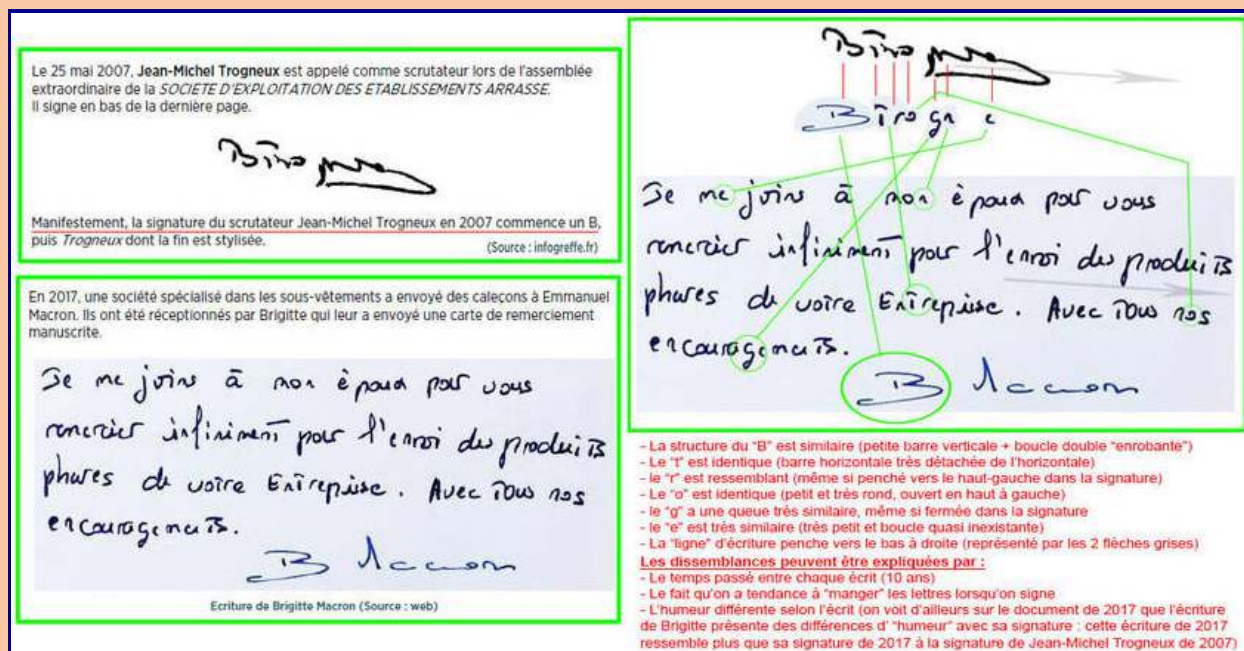 Le 25 mai 2007, Jean-Michel Trogneux est appelé comme scrutateur lors de l'assemblée
extraordinaire de la SOCIETE D'EXPLOITATION DES ETABLISSEMENTS ARRASSE.
Il signe en bas de la dernière page.
Manifestement, la signature du scrutateur Jean-Michel Trogneux en 2007 commence un B,
puis Trogneux dont la fin est stylisée.
(Source : infogreffe.fr)
En 2017, une société spécialisé dans les sous-vêtements a envoyé des caleçons à Emmanuel
Macron. Ils ont été réceptionnés par Brigitte qui leur a envoyé une carte de remerciement
manuscrite.
Je me joins à mon époux pour vous
remercier infiniment pour l'envoi des produits
phares de votre Entreprise. Avec tous nos
encouragements.
B Macron
Ecriture de Brigitte Macron (Source : web)
B T r o g n e
Je me joins à mon époux pour vous
remercier infiniment pour l'envoi des produits
phares de votre Entreprise. Avec tous nos
encouragements.
B Macron
- La structure du "B" est similaire (petite barre verticale + boucle double "enrobante")
- Le "t" est identique (barre horizontale très détachée de l'horizontale)
- le "r" est ressemblant (même si penché vers le haut-gauche dans la signature)
- Le "o" est identique (petit et très rond, ouvert en haut à gauche)
- le "g" a une queue très similaire, même si fermée dans la signature
- le "e" est très similaire (très petit et boucle quasi inexistante)
- La "ligne" d'écriture penche vers le bas à droite (représenté par les 2 flèches grises)
Les dissemblances peuvent être expliquées par :
- Le temps passé entre chaque écrit (10 ans)
- Le fait qu'on a tendance à "manger" les lettres lorsqu'on signe
- L'humeur différente selon l'écrit (on voit d'ailleurs sur le document de 2017 que l'écriture
de Brigitte présente des différences d' "humeur" avec sa signature : cette écriture de 2017
ressemble plus que sa signature de 2017 à la signature de Jean-Michel Trogneux de 2007)